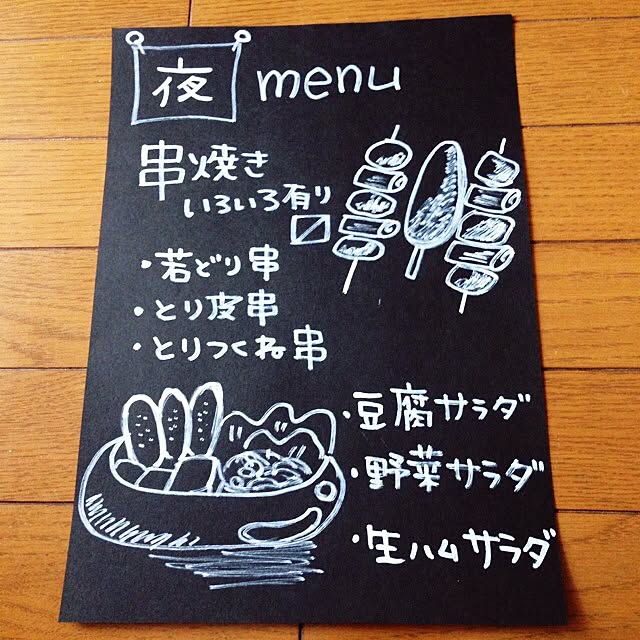 夜 menu
串焼き
いろいろ有り〼
・若どり串
・とり皮串
・とりつくね串
・豆腐サラダ
・野菜サラダ
・生ハムサラダ